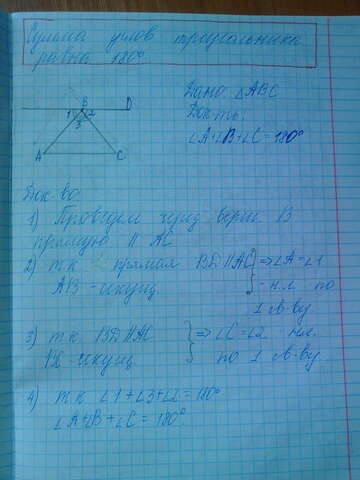 Сумма углов треугольника
равна 180°
B D
1 2
3
A C
Дано: △ABC
Док-ть:
∠A+∠B+∠C=180°
Док-во:
1) Проведем через верш B
прямую || AC
2) т.к прямая BD||AC } ⇒ ∠A=∠1
AB - секущ - н.л по
1 св-ву
3) т.к. BD||AC } ⇒ ∠C=∠2 - н.л.
- секущ по 1 св-ву
4) т.к ∠1+∠3+∠2=180°
∠A+∠B+∠C=180°